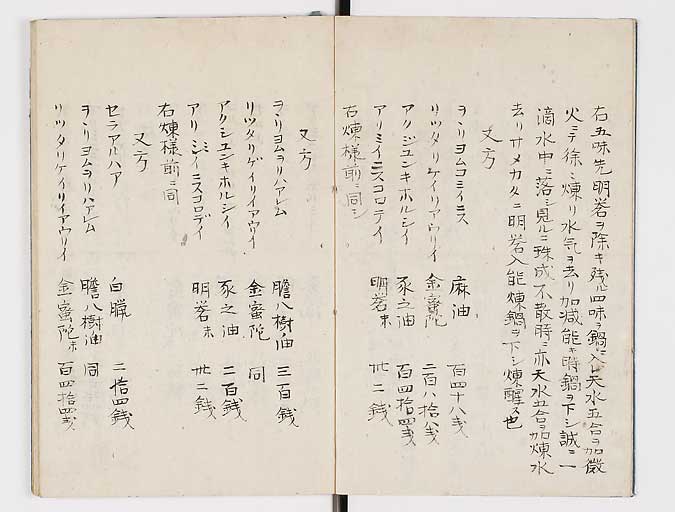 右五味先明礬ヲ除キ残ル四味ヲ鍋ニ入レ天水五合ヲ加微
火ニテ徐々煉リ水気ヲ去リ加減能キ時鍋ヲ下シ誠ニ一
滴水中ニ落シ見ルニ珠成不散時ニ亦天水五合ヲ加煉水
去リサメカタニ明礬入能煉鍋ヲ下シ煉醒ス也
又方
ヲヽリヨムコミイニス 麻油 百四十八戔
リツタリケイリアウリイ 金蜜陀 二百八拾八戔
アクジユンキホルシイ 豕之油 百四拾四戔
アリミイニスコロテイ 明礬末 卅二錢
右煉様前ニ同シ
又方
ヲヽリヨムラリハアレム 膽八樹油 三百錢
リツタリゲイリイアウリイ 金蜜陀 同
アクシユンキホルシイ 豕之油 二百錢
アリミイニスコロデイ 明礬末 卅二錢
右煉様前ニ同
又方
セラアルハア 白臘 二拾四錢
ヲヽリヨムラリハアレム 膽八樹油 同
リツタリケイリイアウリイ 金蜜陀末 百四拾四戔